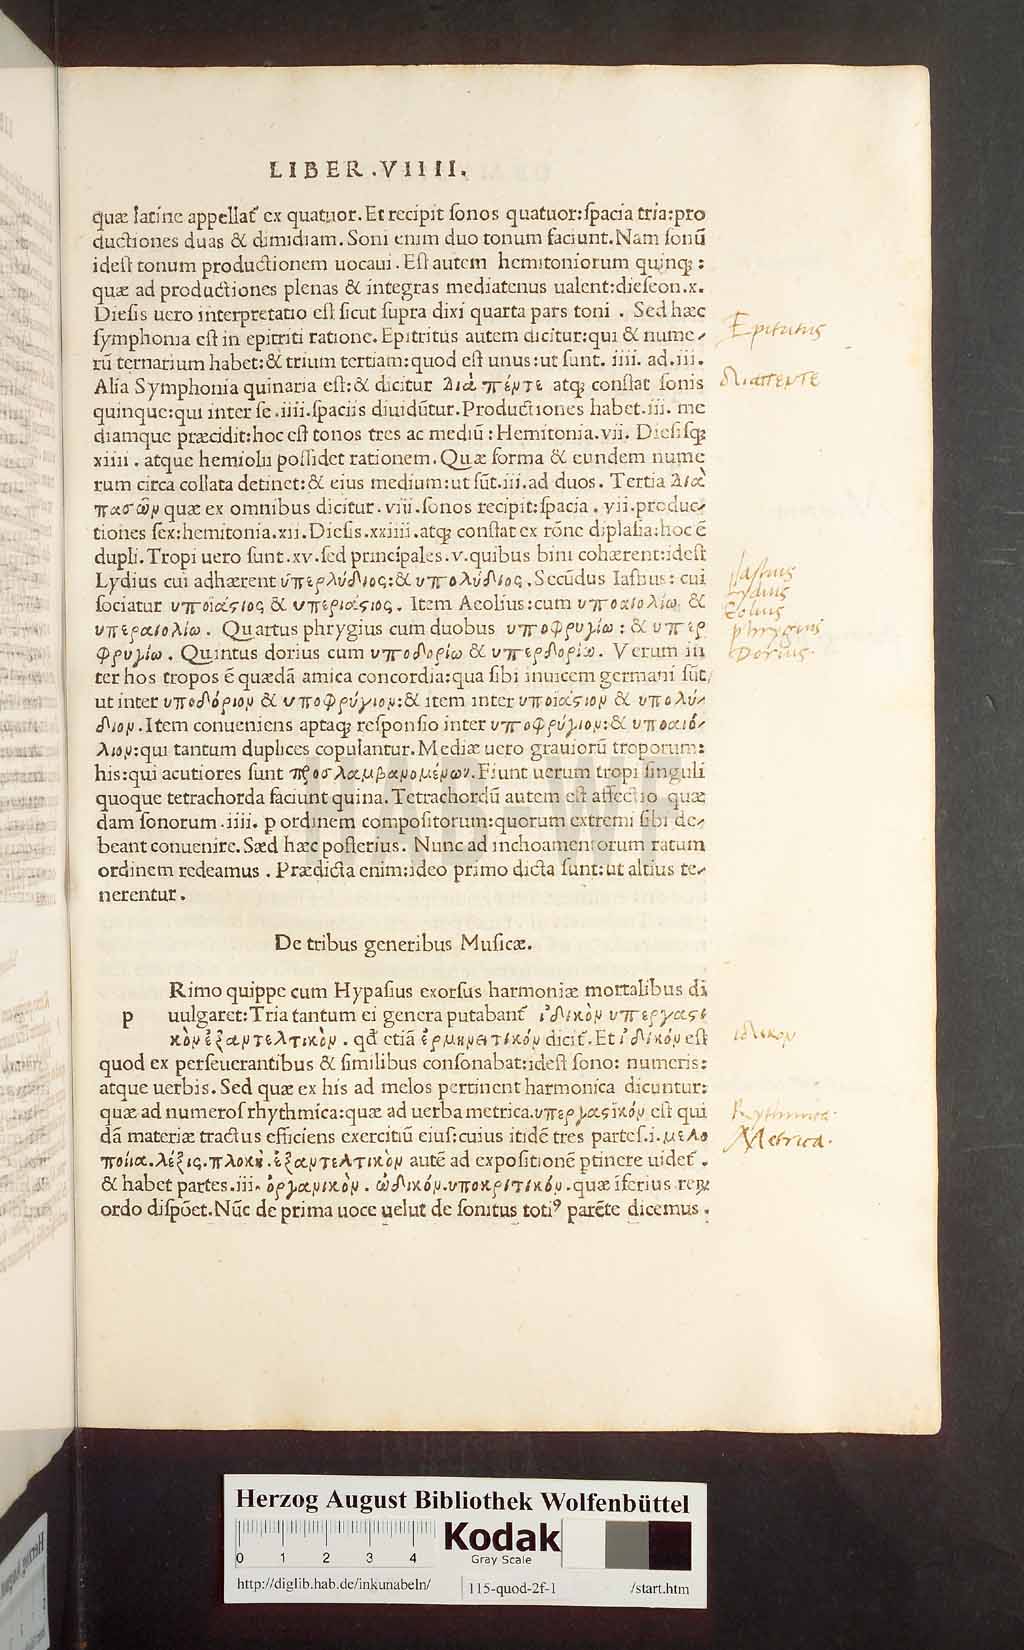 LIBER .VIIII.
quæ latine appellat᷑ ex quatuor. Et recipit sonos quatuor: spacia tria: pro
ductiones duas & dimidiam. Soni enim duo tonum faciunt. Nam sonũ
idest tonum productionem uocaui. Est autem hemitoniorum quinq;:
quæ ad productiones plenas & integras mediatenus ualent: dieseon .x.
Diesis uero interpretatio est sicut supra dixi quarta pars toni . Sed hæc
symphonia est in epitriti ratione. Epitritus autem dicitur: qui & nume-
rũ ternarium habet: & trium tertiam: quod est unus: ut sunt. iiii. ad .iii.
Alia Symphonia quinaria est: & dicitur διὰ πέντε atq; constat sonis
quinque: qui inter se .iiii. spaciis diuidũtur. Productiones habet .iii. me
diamque præcidit: hoc est tonos tres ac mediũ: Hemitonia .vii. Diesisq;
xiiii. atque hemiolii possidet rationem. Quæ forma & eundem nume
rum circa collata detinet: & eius medium: ut sũt .iii. ad duos. Tertia διὰ
πασῶν quæ ex omnibus dicitur. viii. sonos recipit: spacia . vii. produc-
tiones sex: hemitonia .xii. Diesis .xxiiii. atq; constat ex rõne diplasia: hoc ẽ
dupli. Tropi uero sunt .xv. sed principales .v. quibus bini cohærent: idest
Lydius cui adhærent ὑπερλύδιος: & υπολύδιος. Secũdus Iastius: cui
sociatur υποϊάςιος & υπεριάςιος. Item Aeolius: cum υποαιολίω & 
υπεραιολίω. Quartus phrygius cum duobus υποφρυγίω: & υπερ
φρυγίω. Quintus dorius cum υποδορίω & υπερδορίω. Verum in
ter hos tropos ẽ quædã amica concordia: qua sibi inuicem germani sũt
ut inter υποδόριον & υποφρύγιον: & item inter υποϊάςιον & υπολύ-
διον. Item conueniens aptaq; responsio inter υποφρύγιον: & υποαιό-
λιον: qui tantum duplices copulantur. Mediæ uero grauiorũ troporum:
his: qui acutiores sunt προσλαμβανομένων. Fiunt uerum tropi singuli
quoque tetrachorda faciunt quina. Tetrachordũ autem est affectio quæ
dam sonorum .iiii. p ordinem compositorum: quorum extremi sibi de-
beant conuenire. Sæd hæc posterius. Nunc ad inchoamentorum ratum
ordinem redeamus . Prædicta enim: ideo primo dicta sunt: ut altius te-
nerentur.
De tribus generibus Musicæ.
Rimo quippe cum Hypasius exorsus harmoniæ mortalibus di
p uulgaret: Tria tantum ei genera putabant᷑ ἰδικὸν υπεργασι
κὸν ἐξαντελτικὸν. qđ etiã ἑρμηνευτικόν dicit᷑. Et ἰδικόν est
quod ex perseuerantibus & similibus consonabat: idest sono: numeris:
atque uerbis. Sed quæ ex his ad melos pertinent harmonica dicuntur:
quæ ad numeros rhythmica: quæ ad uerba metrica. υπεργασϊκόν est qui
dã materiæ tractus efficiens exercitiũ eius: cuius itidẽ tres partes .i. μελο
ποιια. λέξις. πλοκὴ. ἐξαντελτικὸν autẽ ad expositionẽ ptinere uidet᷑.
& habet partes .iii. ὀργανικὸν. ὠδικόν. υποκριτικόν. quæ ĩferius reꝝ
ordo dispõet. Nũc de prima uoce uelut de sonitus toti⁹ parẽte dicemus.
Epitritus
διαπεντε
Jastius
Lydius
Eolius
phrygius
Dorius.
ιδικον
Rythmica
Metrica.
Herzog August Bibliothek Wolfenbüttel
0 1 2 3 4
Kodak
Gray Scale
http://diglib.hab.de/inkunabeln/ 115-quod-2f-1 /start.htm
HAB-WF